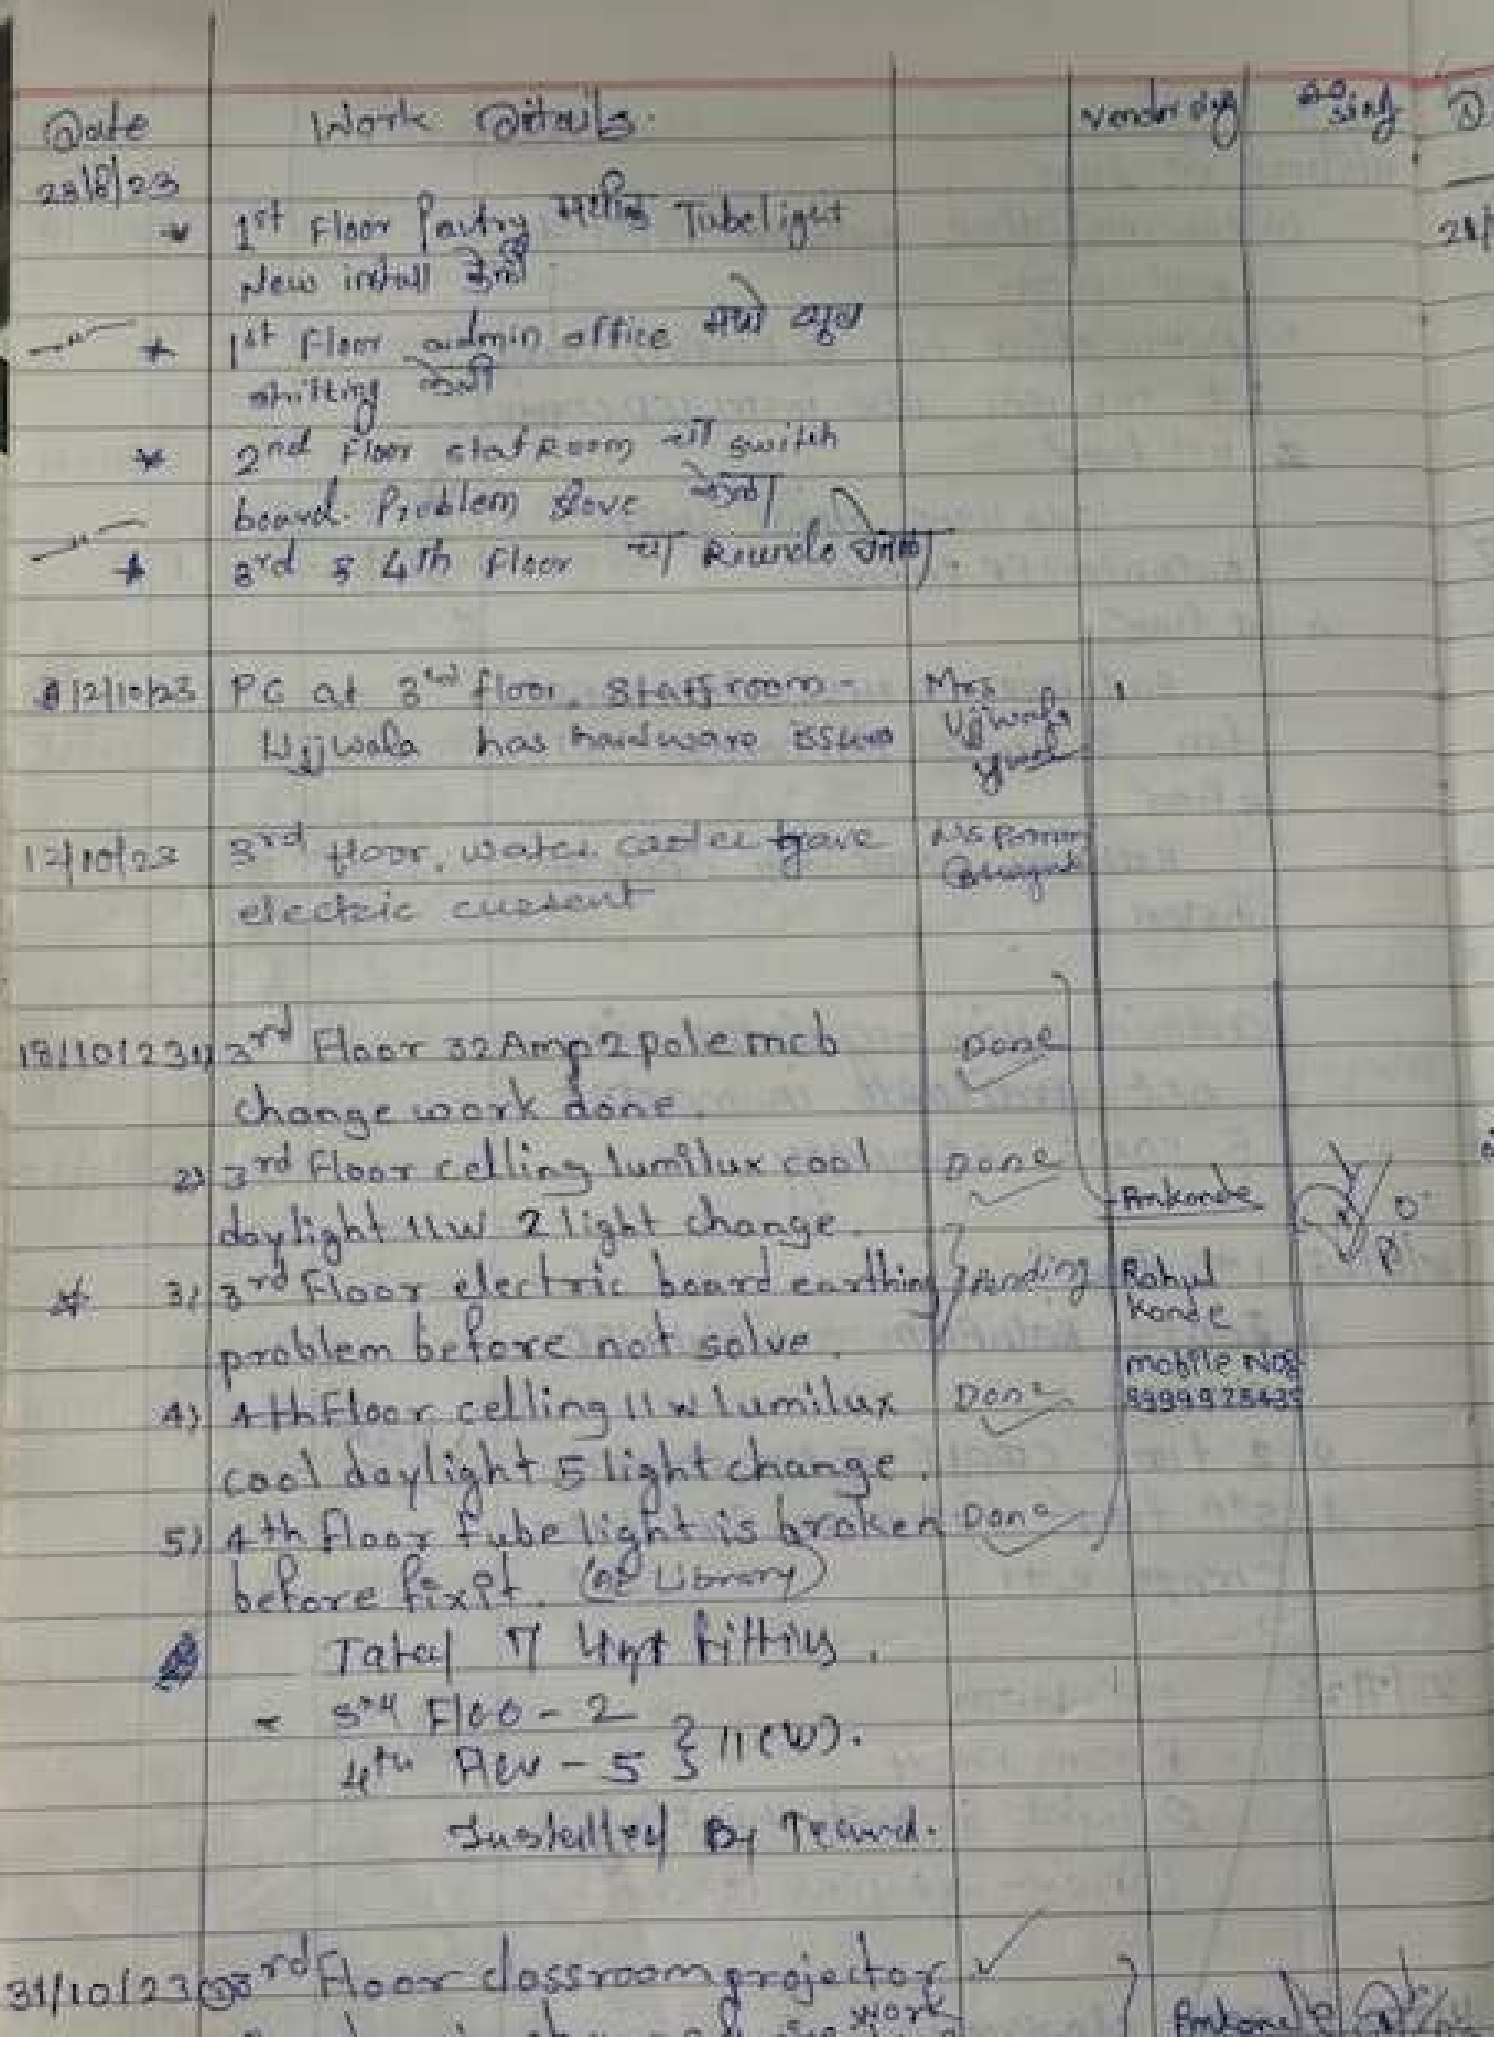 Date Work Details vendor sig sing
23/8/23
* 1st Floor Pantry मधील Tubelight
New install केली
—"— * 1st Floor admin office मधे ट्यूब
shifting केली
* 2nd Floor stafRoom चा switch
board. Problem slove केला
—"— * 3rd & 4th Floor चा Rounde
12/10/23 PC at 3rd floor, Staff room - Mrs
Ujjwala has hardware issue Ujjwala
12/10/23 3rd floor, water cooler gave
electric current
18/10/23 1) 3rd Floor 32 Amp 2 pole mcb Done
change work done.
2) 3rd Floor celling lumilux cool Done
daylight 11w 2 light change. Amkonde
* 3) 3rd Floor electric board earthing Pending Rahul
Konde
problem before not solve.
mobile No:
4) 4th Floor celling 11w lumilux Done
cool daylight 5 light change.
5) 4th floor tube light is broken Done
before fix it. (at Library)
Total 7 light fittings.
- 3rd Floo - 2
4th - 5 } 11(W).
Installed By
31/10/23 3rd Floor classroom projector
work Amkonde